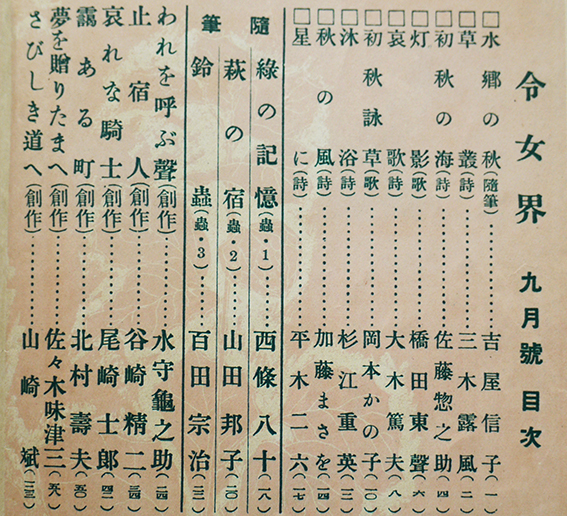 令女界 九月號 目次
□水鄉の秋(隨筆)…………吉屋信子(一)
□草叢(詩)…………三木露風(二)
□初秋の海(詩)…………佐藤惣之助(四)
□灯影(歌)…………橋田東聲(六)
□哀歌(詩)…………大木篤夫(八)
□初秋詠草(歌)…………岡本かの子(一〇)
□沐浴(詩)…………杉江重英(一三)
□秋の風(詩)…………加藤まさを(一四)
□星に(詩)…………平木二六(一七)
隨筆
綠の記憶(蟲・1)…………西條八十(一八)
萩の宿(蟲・2)…………山田邦子(二〇)
鈴蟲(蟲・3)…………百田宗治(二二)
われを呼ぶ聲(創作)…………水守龜之助(二四)
止宿人(創作)…………谷崎精二(三四)
哀れな騎士(創作)…………尾崎士郎(四二)
靄ある町(創作)…………北村壽夫(五〇)
夢を贈りたまへ(創作)…………佐々木味津三(五八)
さびしき道へ(創作)…………山崎斌